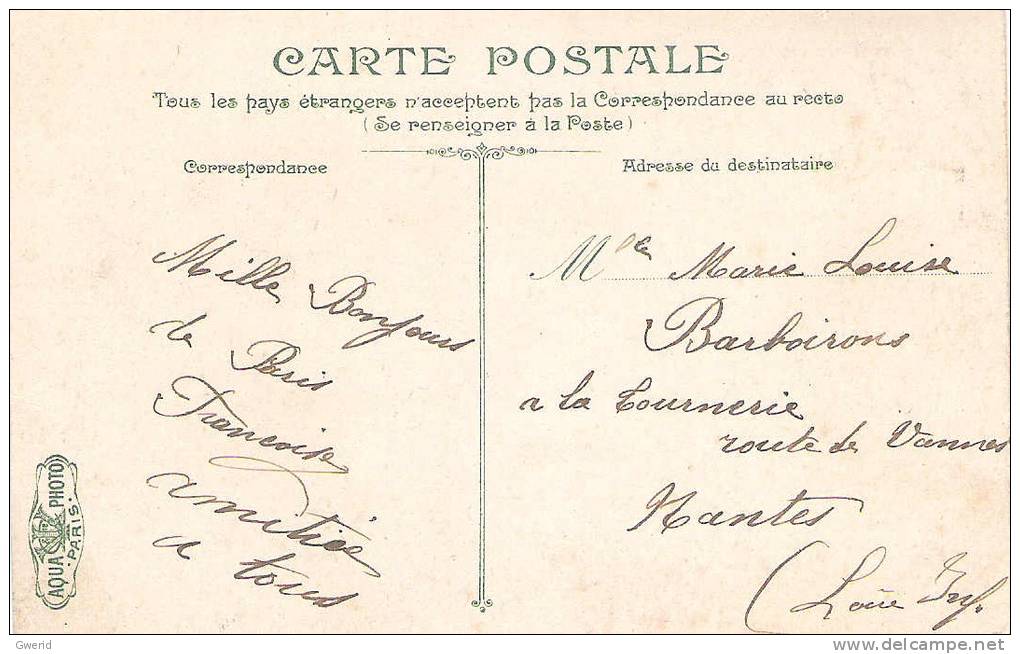 CARTE POSTALE
Tous les pays étrangers n'acceptent pas la Correspondance au recto
(Se renseigner à la Poste)
Correspondance
Mille Bonjours
de Paris
Françoise
amitié
a tous
AQUA PHOTO
PARIS.
Adresse du destinataire
Mlle Marie Louise
Barboirons
a la Tournerie
route de Vannes
Nantes
(Loire Inf.
Gwerid
www.delcampe.net